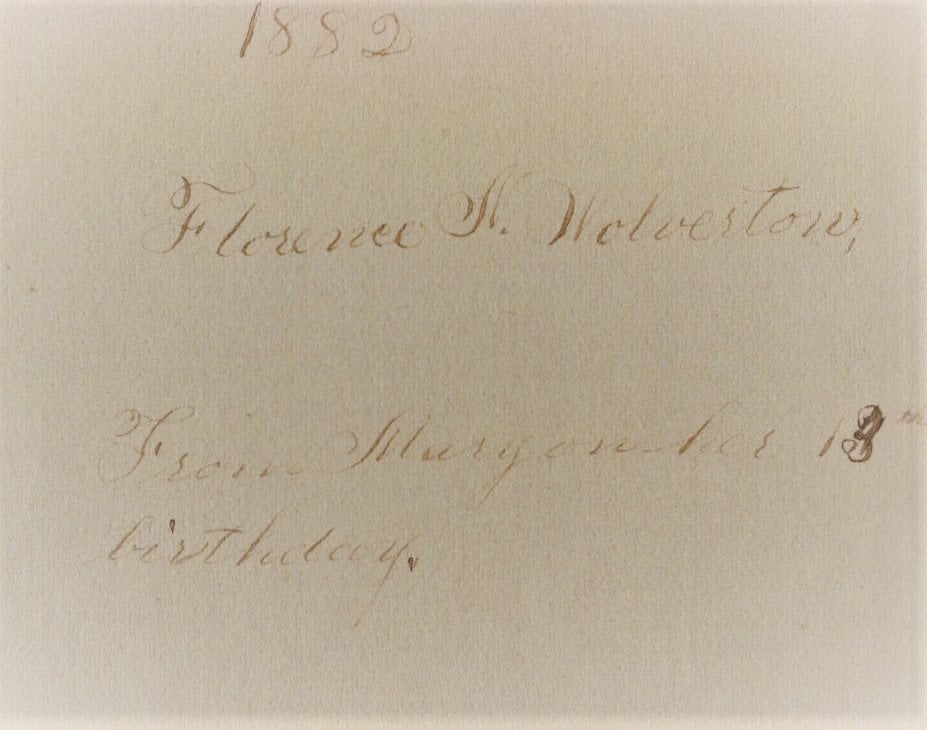 1882
Florence N. Wolverton,
From Mary on her 13th
birthday.